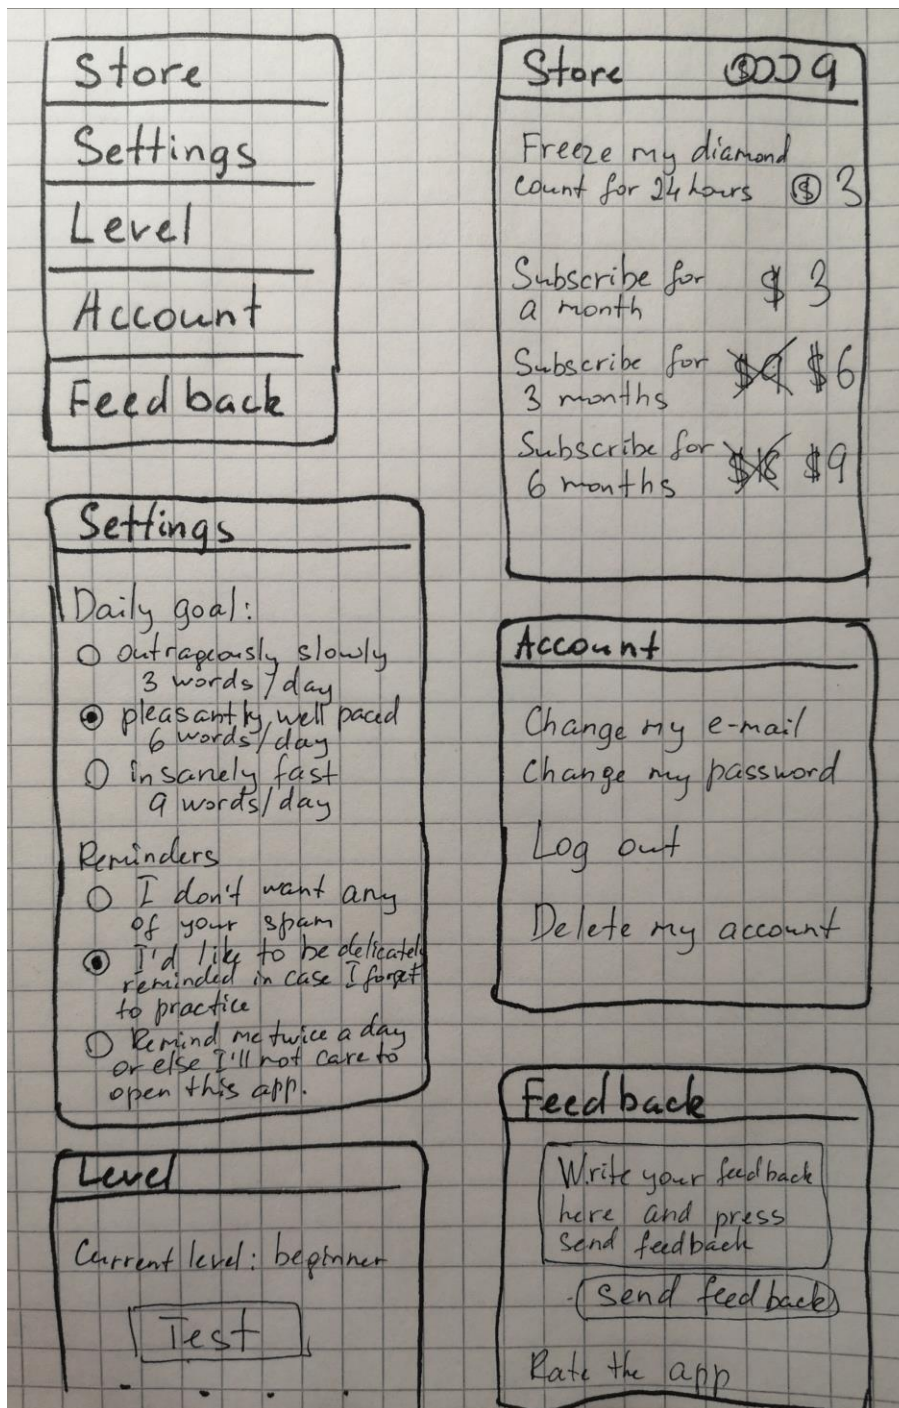 Store
Settings
Level
Account
Feedback
Settings
Daily goal:
outrageously slowly
3 words/day
pleasantly well paced
6 words/day
insanely fast
9 words/day
Reminders
I don't want any
of your spam
I'd like to be delicately
reminded in case I forget
to practice
Remind me twice a day
or else I'll not care to
open this app.
Level
Current level: beginner
Test
Store 9
Freeze my diamond
count for 24 hours $ 3
Subscribe for
a month $ 3
Subscribe for
3 months $9 $6
Subscribe for
6 months $18 $9
Account
Change my e-mail
Change my password
Log out
Delete my account
Feedback
Write your feedback
here and press
send feedback
Send feedback
Rate the app